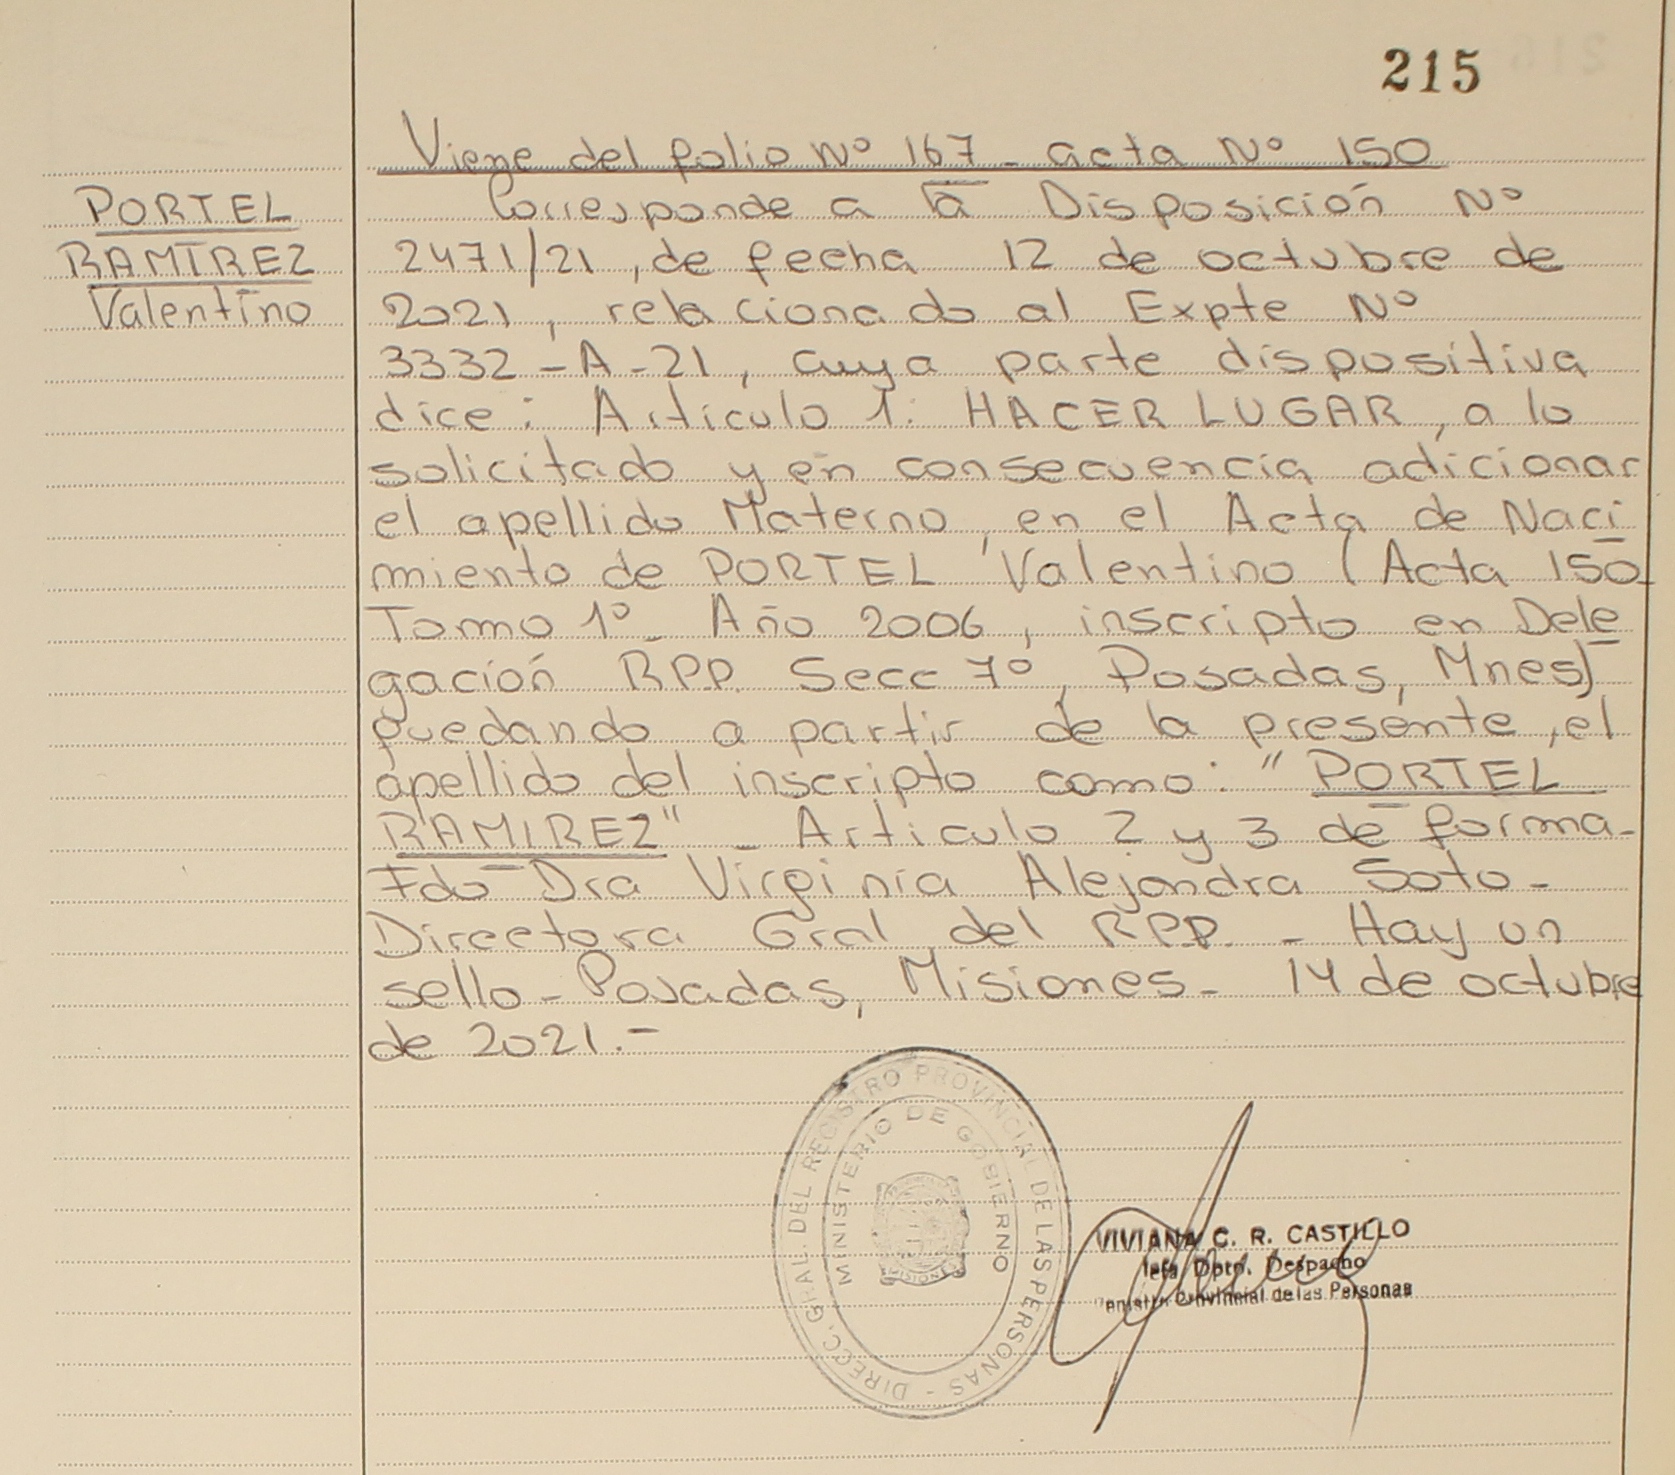 215
Viene del folio Nº 167 - acta Nº 150
PORTEL
RAMIREZ
Valentino
Corresponde a la Disposición Nº
2471/21, de fecha 12 de octubre de
2021, relacionado al Expte Nº
3332-A-21, cuya parte dispositiva
dice: Artículo 1: HACER LUGAR, a lo
solicitado y en consecuencia adicionar
el apellido Materno, en el Acta de Naci
miento de PORTEL Valentino (Acta 150
Tomo 1º - Año 2006, inscripto en Dele
gación RPP. Secc 7º, Posadas, Mnes)
quedando a partir de la presente, el
apellido del inscripto como: "PORTEL
RAMIREZ" - Articulo 2 y 3 de forma-
Fdo Dra Virginia Alejandra Soto -
Directora Gral del RPP. - Hay un
sello - Posadas, Misiones - 14 de octubre
de 2021.-
DIRECC. GRAL. DEL REGISTRO PROVINCIAL DE LAS PERSONAS -
MINISTERIO DE GOBIERNO
MISIONES
VIVIANA C. R. CASTILLO
Jefa Dpto. Despacho
Registro Provincial de las Personas